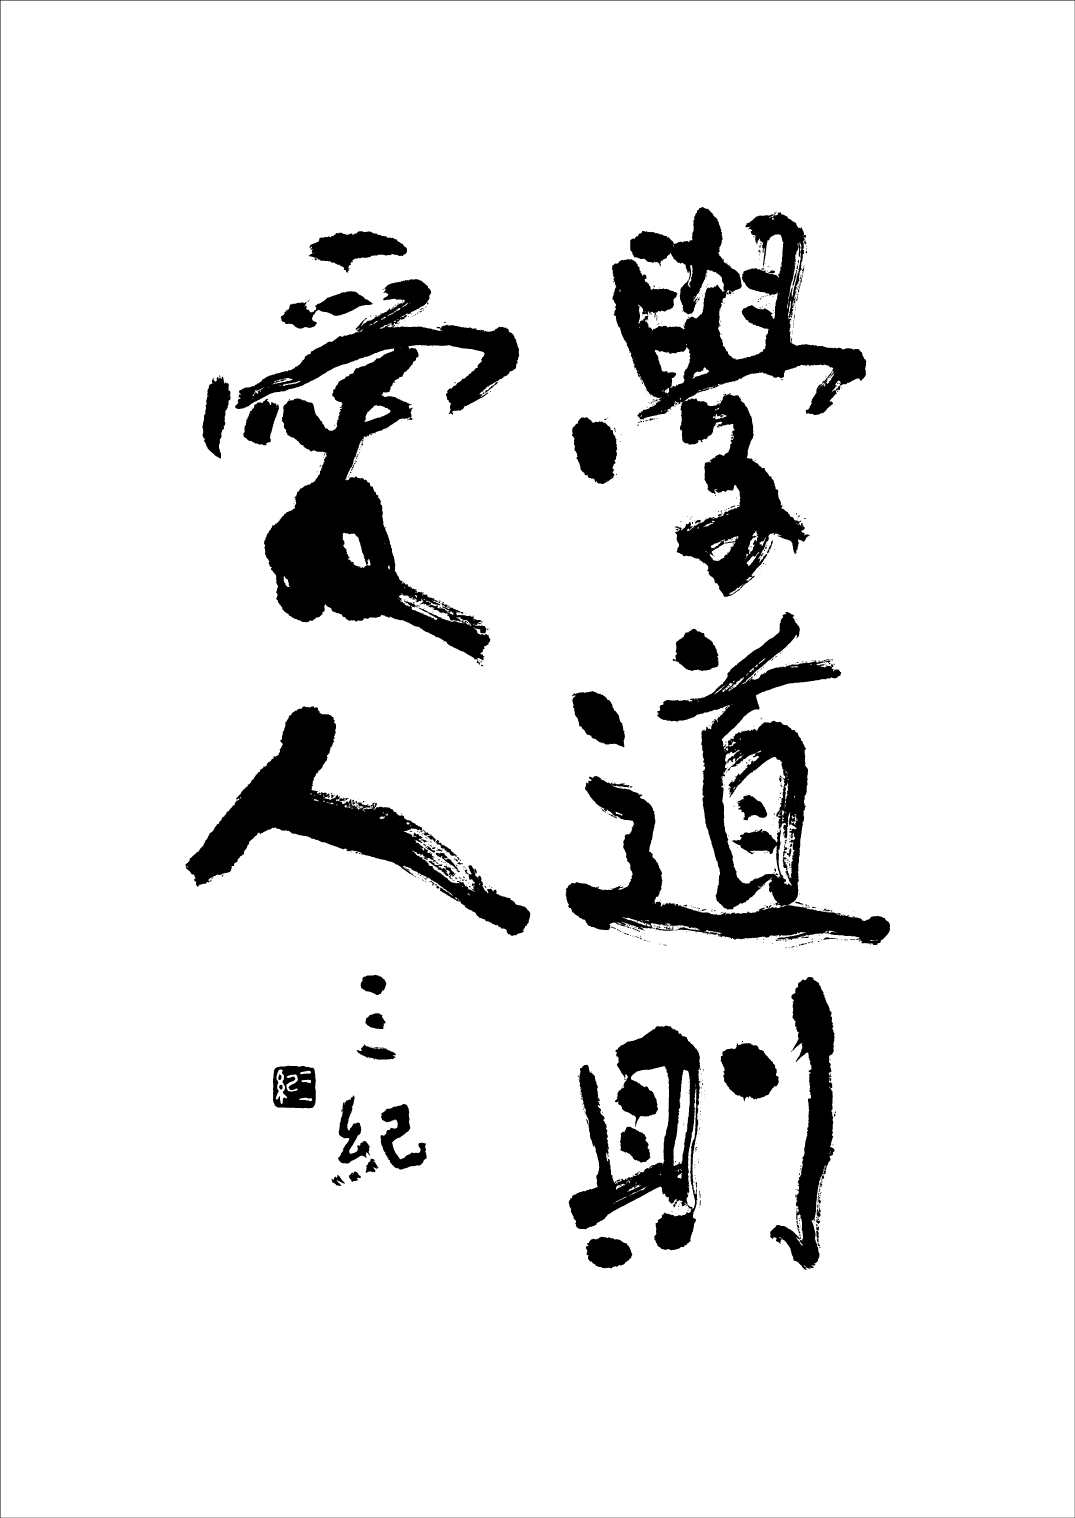 學道則
愛人
三紀
三紀